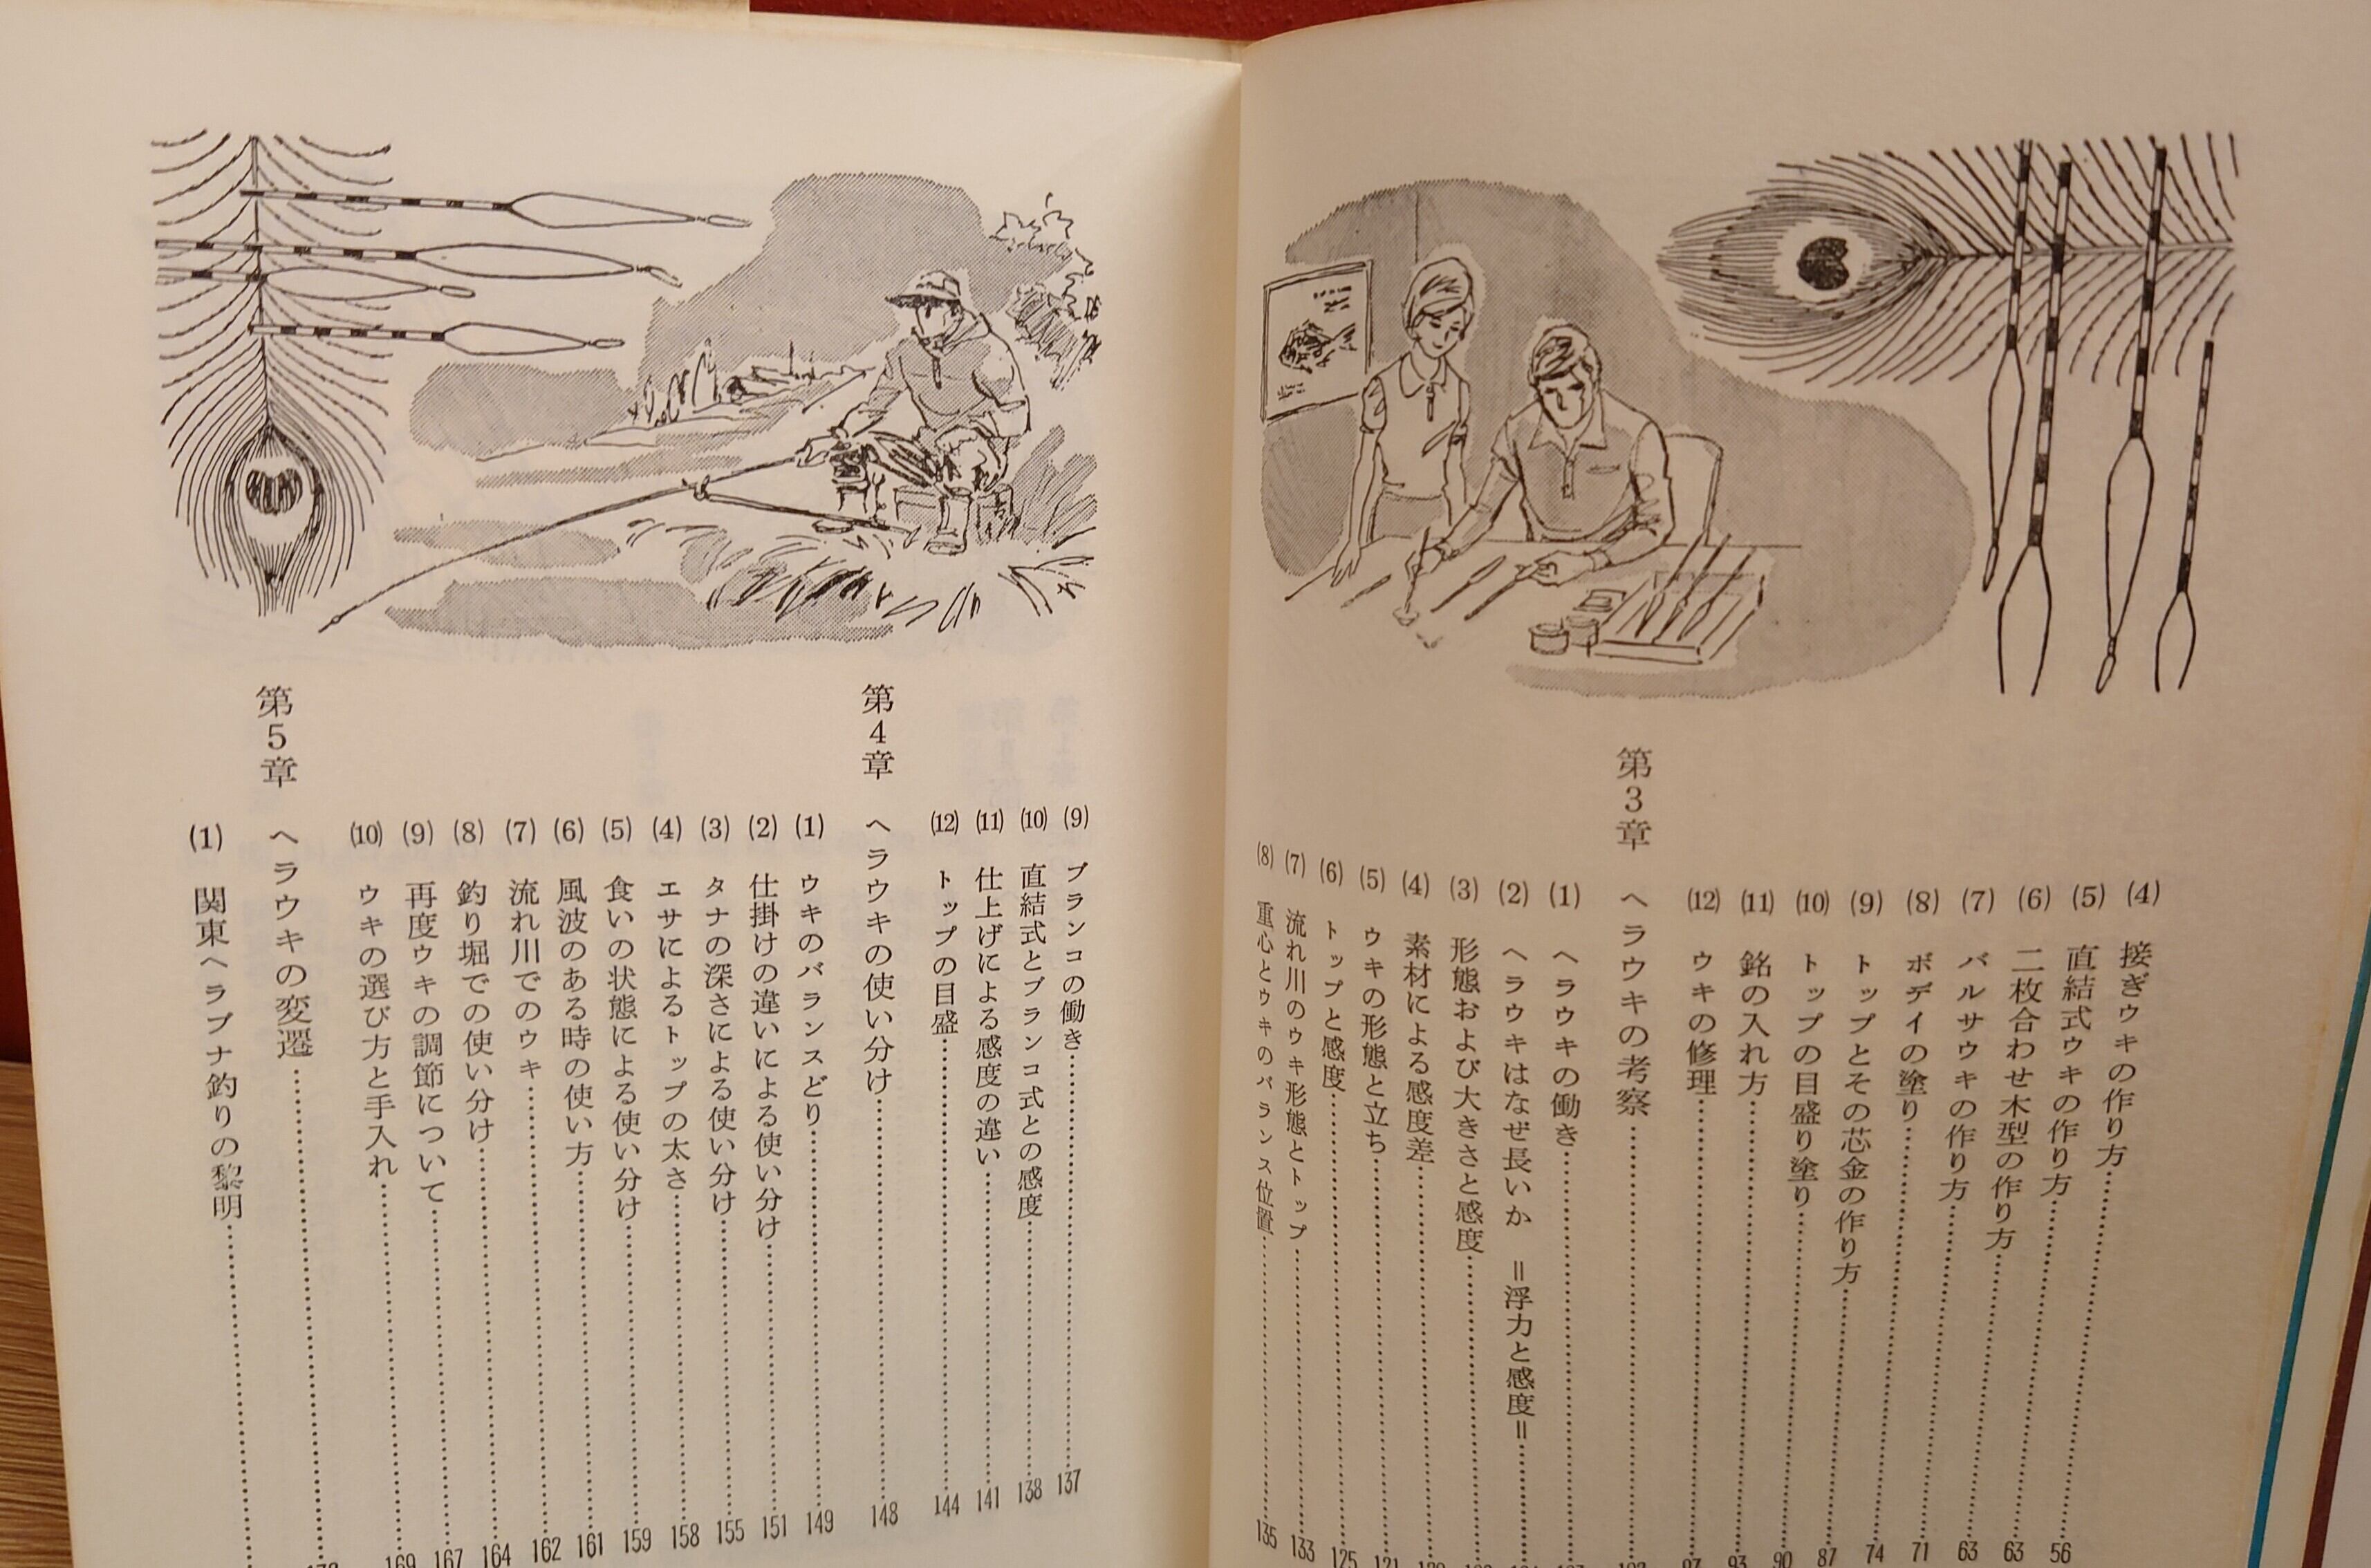 (4) 接ぎウキの作り方……56
(5) 直結式ウキの作り方……63
(6) 二枚合わせ木型の作り方……63
(7) バルサウキの作り方……71
(8) ボデイの塗り……74
(9) トップとその芯金の作り方……87
(10) トップの目盛り塗り……90
(11) 銘の入れ方……93
(12) ウキの修理……97
第3章 ヘラウキの考察……
(1) ヘラウキの働き……
(2) ヘラウキはなぜ長いか =浮力と感度=……
(3) 形態および大きさと感度……
(4) 素材による感度差……
(5) ウキの形態と立ち……121
(6) トップと感度……125
(7) 流れ川のウキ形態とトップ……133
(8) 重心とウキのバランス位置……135
(9) ブランコの働き……137
(10) 直結式とブランコ式との感度……138
(11) 仕上げによる感度の違い……141
(12) トップの目盛……144
第4章 ヘラウキの使い分け……148
(1) ウキのバランスどり……149
(2) 仕掛けの違いによる使い分け……151
(3) タナの深さによる使い分け……155
(4) エサによるトップの太さ……158
(5) 食いの状態による使い分け……159
(6) 風波のある時の使い方……161
(7) 流れ川でのウキ……162
(8) 釣り堀での使い分け……164
(9) 再度ウキの調節について……167
(10) ウキの選び方と手入れ……169
第5章 ヘラウキの変遷……
(1) 関東ヘラブナ釣りの黎明……